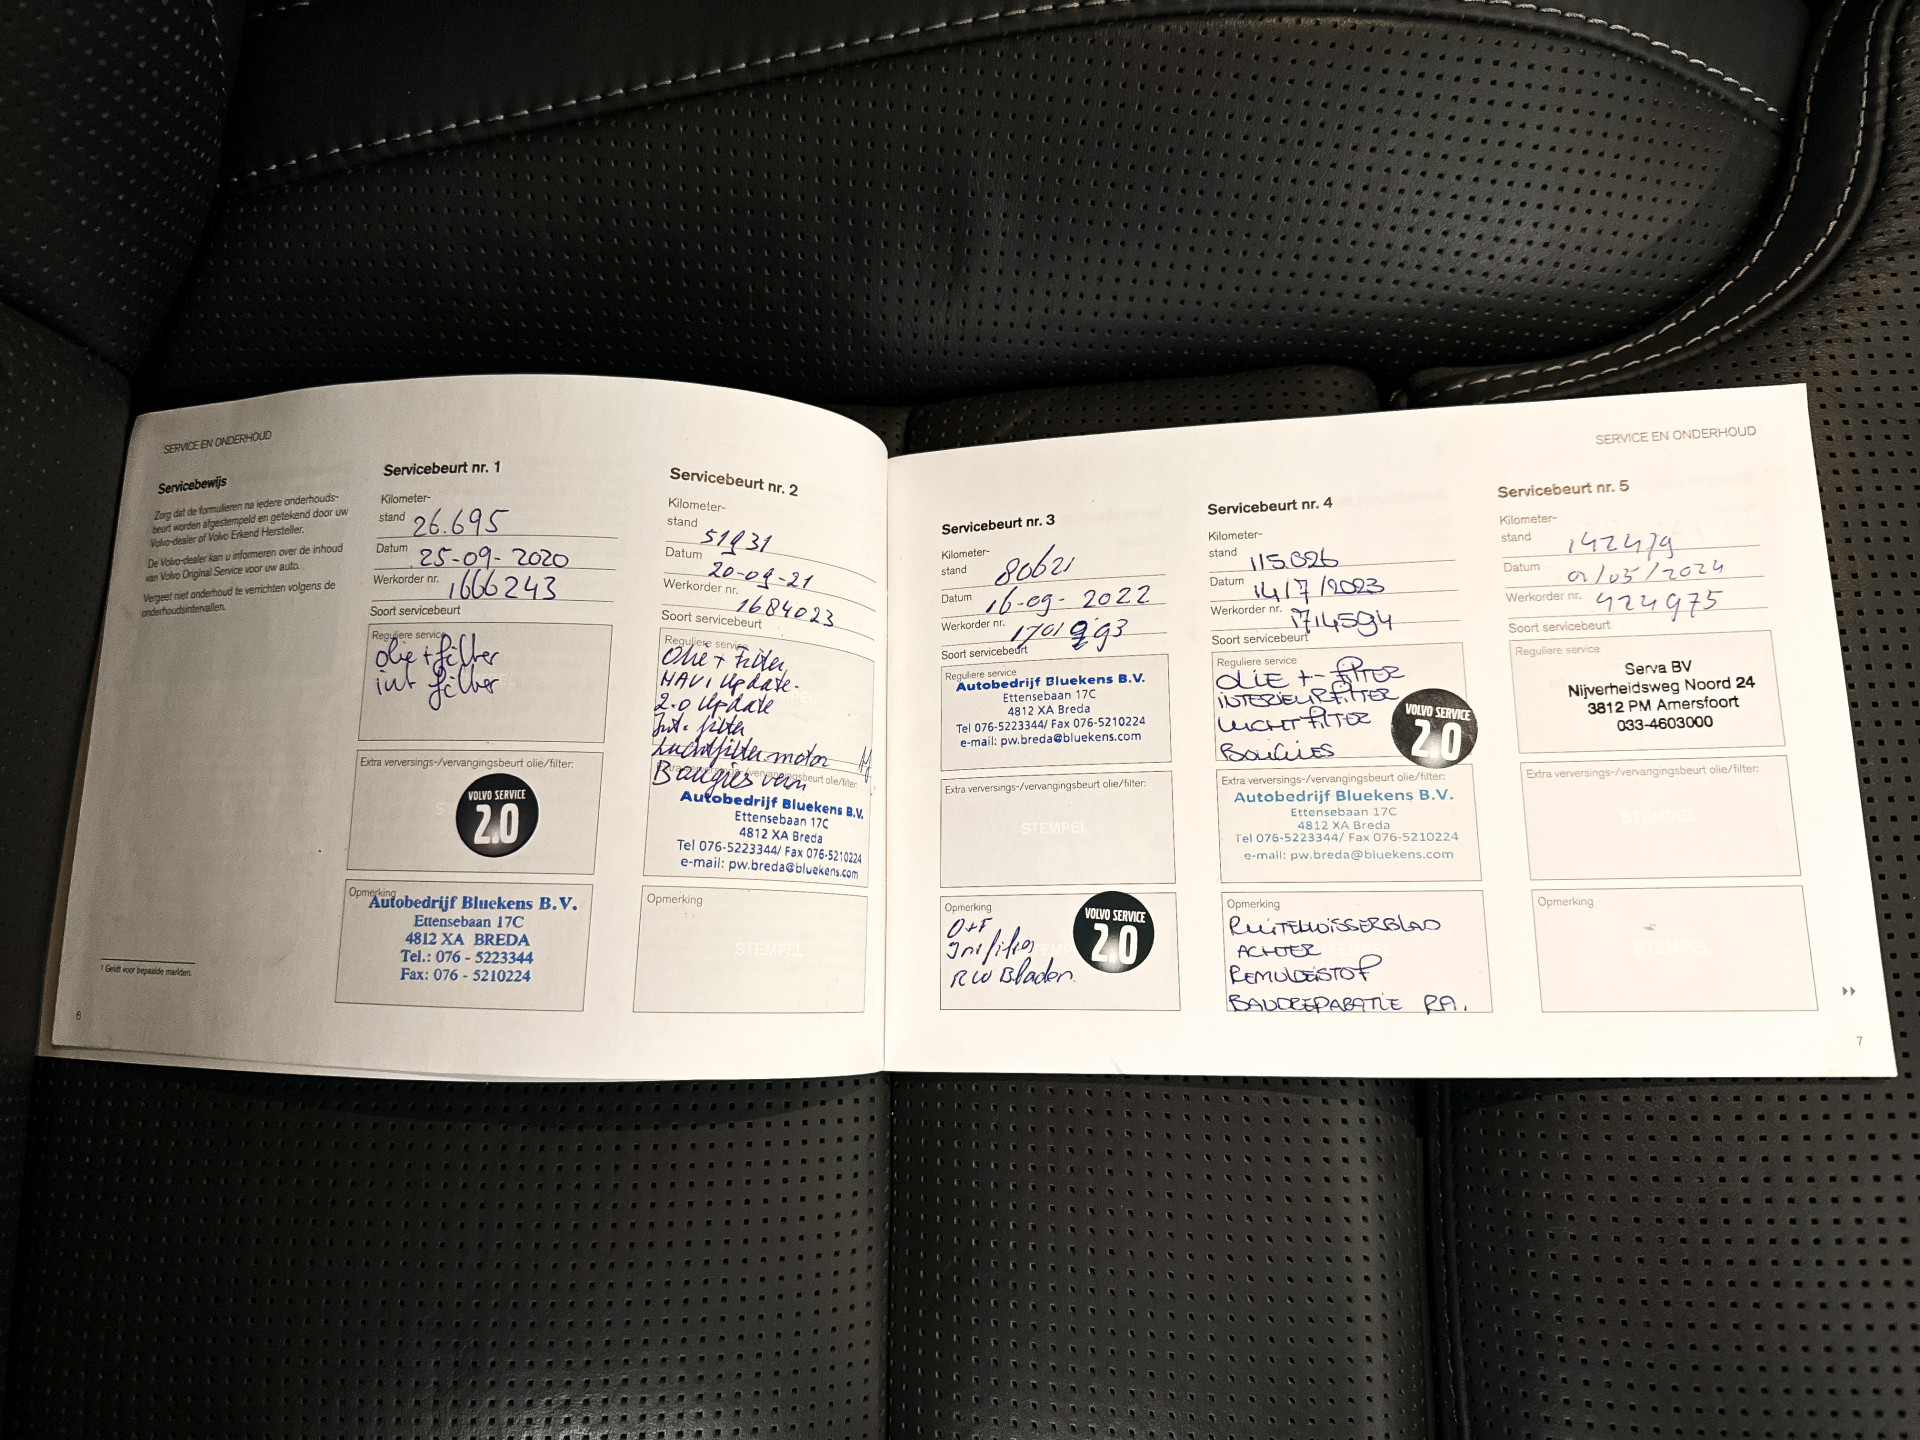 SERVICE EN ONDERHOUD
Servicebewijs
Zorg dat de formulieren na iedere onderhouds-
beurt worden afgestempeld en getekend door uw
Volvo-dealer of Volvo Erkend Hersteller.
De Volvo-dealer kan u informeren over de inhoud
van Volvo Original Service voor uw auto.
Vergeet niet onderhoud te verrichten volgens de
onderhoudsintervallen.
1 Geldt voor bepaalde markten.
6
Servicebeurt nr. 1
Kilometer-
stand 26.695
Datum 25-09-2020
Werkorder nr. 1666243
Soort servicebeurt
Reguliere service
olie + filter
int filter
Extra verversings-/vervangingsbeurt olie/filter:
VOLVO SERVICE
2.0
Opmerking
Autobedrijf Bluekens B.V.
Ettensebaan 17C
4812 XA BREDA
Tel.: 076 - 5223344
Fax: 076 - 5210224
Servicebeurt nr. 2
Kilometer-
stand 51931
Datum 20-09-21
Werkorder nr. 1684023
Soort servicebeurt
Reguliere service
Olie + Filter
NAVI Update
2.0 Update
Int. filter
Luchtfilter motor
Bougies vern
Extra verversings-/vervangingsbeurt olie/filter:
Autobedrijf Bluekens B.V.
Ettensebaan 17C
4812 XA Breda
Tel 076-5223344/ Fax 076-5210224
e-mail: pw.breda@bluekens.com
Opmerking
STEMPEL
SERVICE EN ONDERHOUD
Servicebeurt nr. 3
Kilometer-
stand 80621
Datum 16-09-2022
Werkorder nr.
Soort servicebeurt
Reguliere service
Autobedrijf Bluekens B.V.
Ettensebaan 17C
4812 XA Breda
Tel 076-5223344/ Fax 076-5210224
e-mail: pw.breda@bluekens.com
Extra verversings-/vervangingsbeurt olie/filter:
STEMPEL
Opmerking
VOLVO SERVICE
2.0
O+F
RW Bladen.
Servicebeurt nr. 4
Kilometer-
stand 115.826
Datum 14/7/2023
Werkorder nr. 1714594
Soort servicebeurt
Reguliere service
OLIE + FILTER
INTERIEURFILTER
LUCHTFILTER
BOUGIES
VOLVO SERVICE
2.0
Extra verversings-/vervangingsbeurt olie/filter:
Autobedrijf Bluekens B.V.
Ettensebaan 17C
4812 XA Breda
Tel 076-5223344/ Fax 076-5210224
e-mail: pw.breda@bluekens.com
Opmerking
RUITENWISSERBLAD
ACHTER
REMVLOEISTOF
BANDREPARATIE RA.
Servicebeurt nr. 5
Kilometer-
stand 142479
Datum 01/05/2024
Werkorder nr. 424975
Soort servicebeurt
Reguliere service
Serva BV
Nijverheidsweg Noord 24
3812 PM Amersfoort
033-4603000
Extra verversings-/vervangingsbeurt olie/filter:
STEMPEL
Opmerking
STEMPEL
7